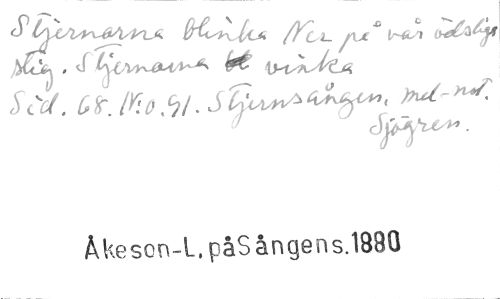 Stjernorna blinka Ner på vår ödsliga
stig. Stjernorna vinka
Sid. 68. No. 91. Stjernsången. mel-not.
Sjögren.
Åkeson-L, påSångens.1880